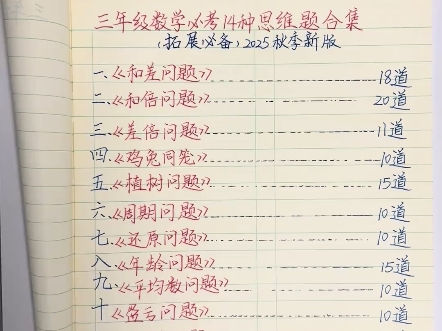 三年级数学必考14种思维题合集
(拓展必备)2025秋季新版
一、《和差问题》 18道
二、《和倍问题》 20道
三、《差倍问题》 11道
四、《鸡兔同笼》 10道
五、《植树问题》 15道
六、《周期问题》 10道
七、《还原问题》 10道
八、《年龄问题》 15道
九、《平均数问题》 10道
十、《盈亏问题》 10道